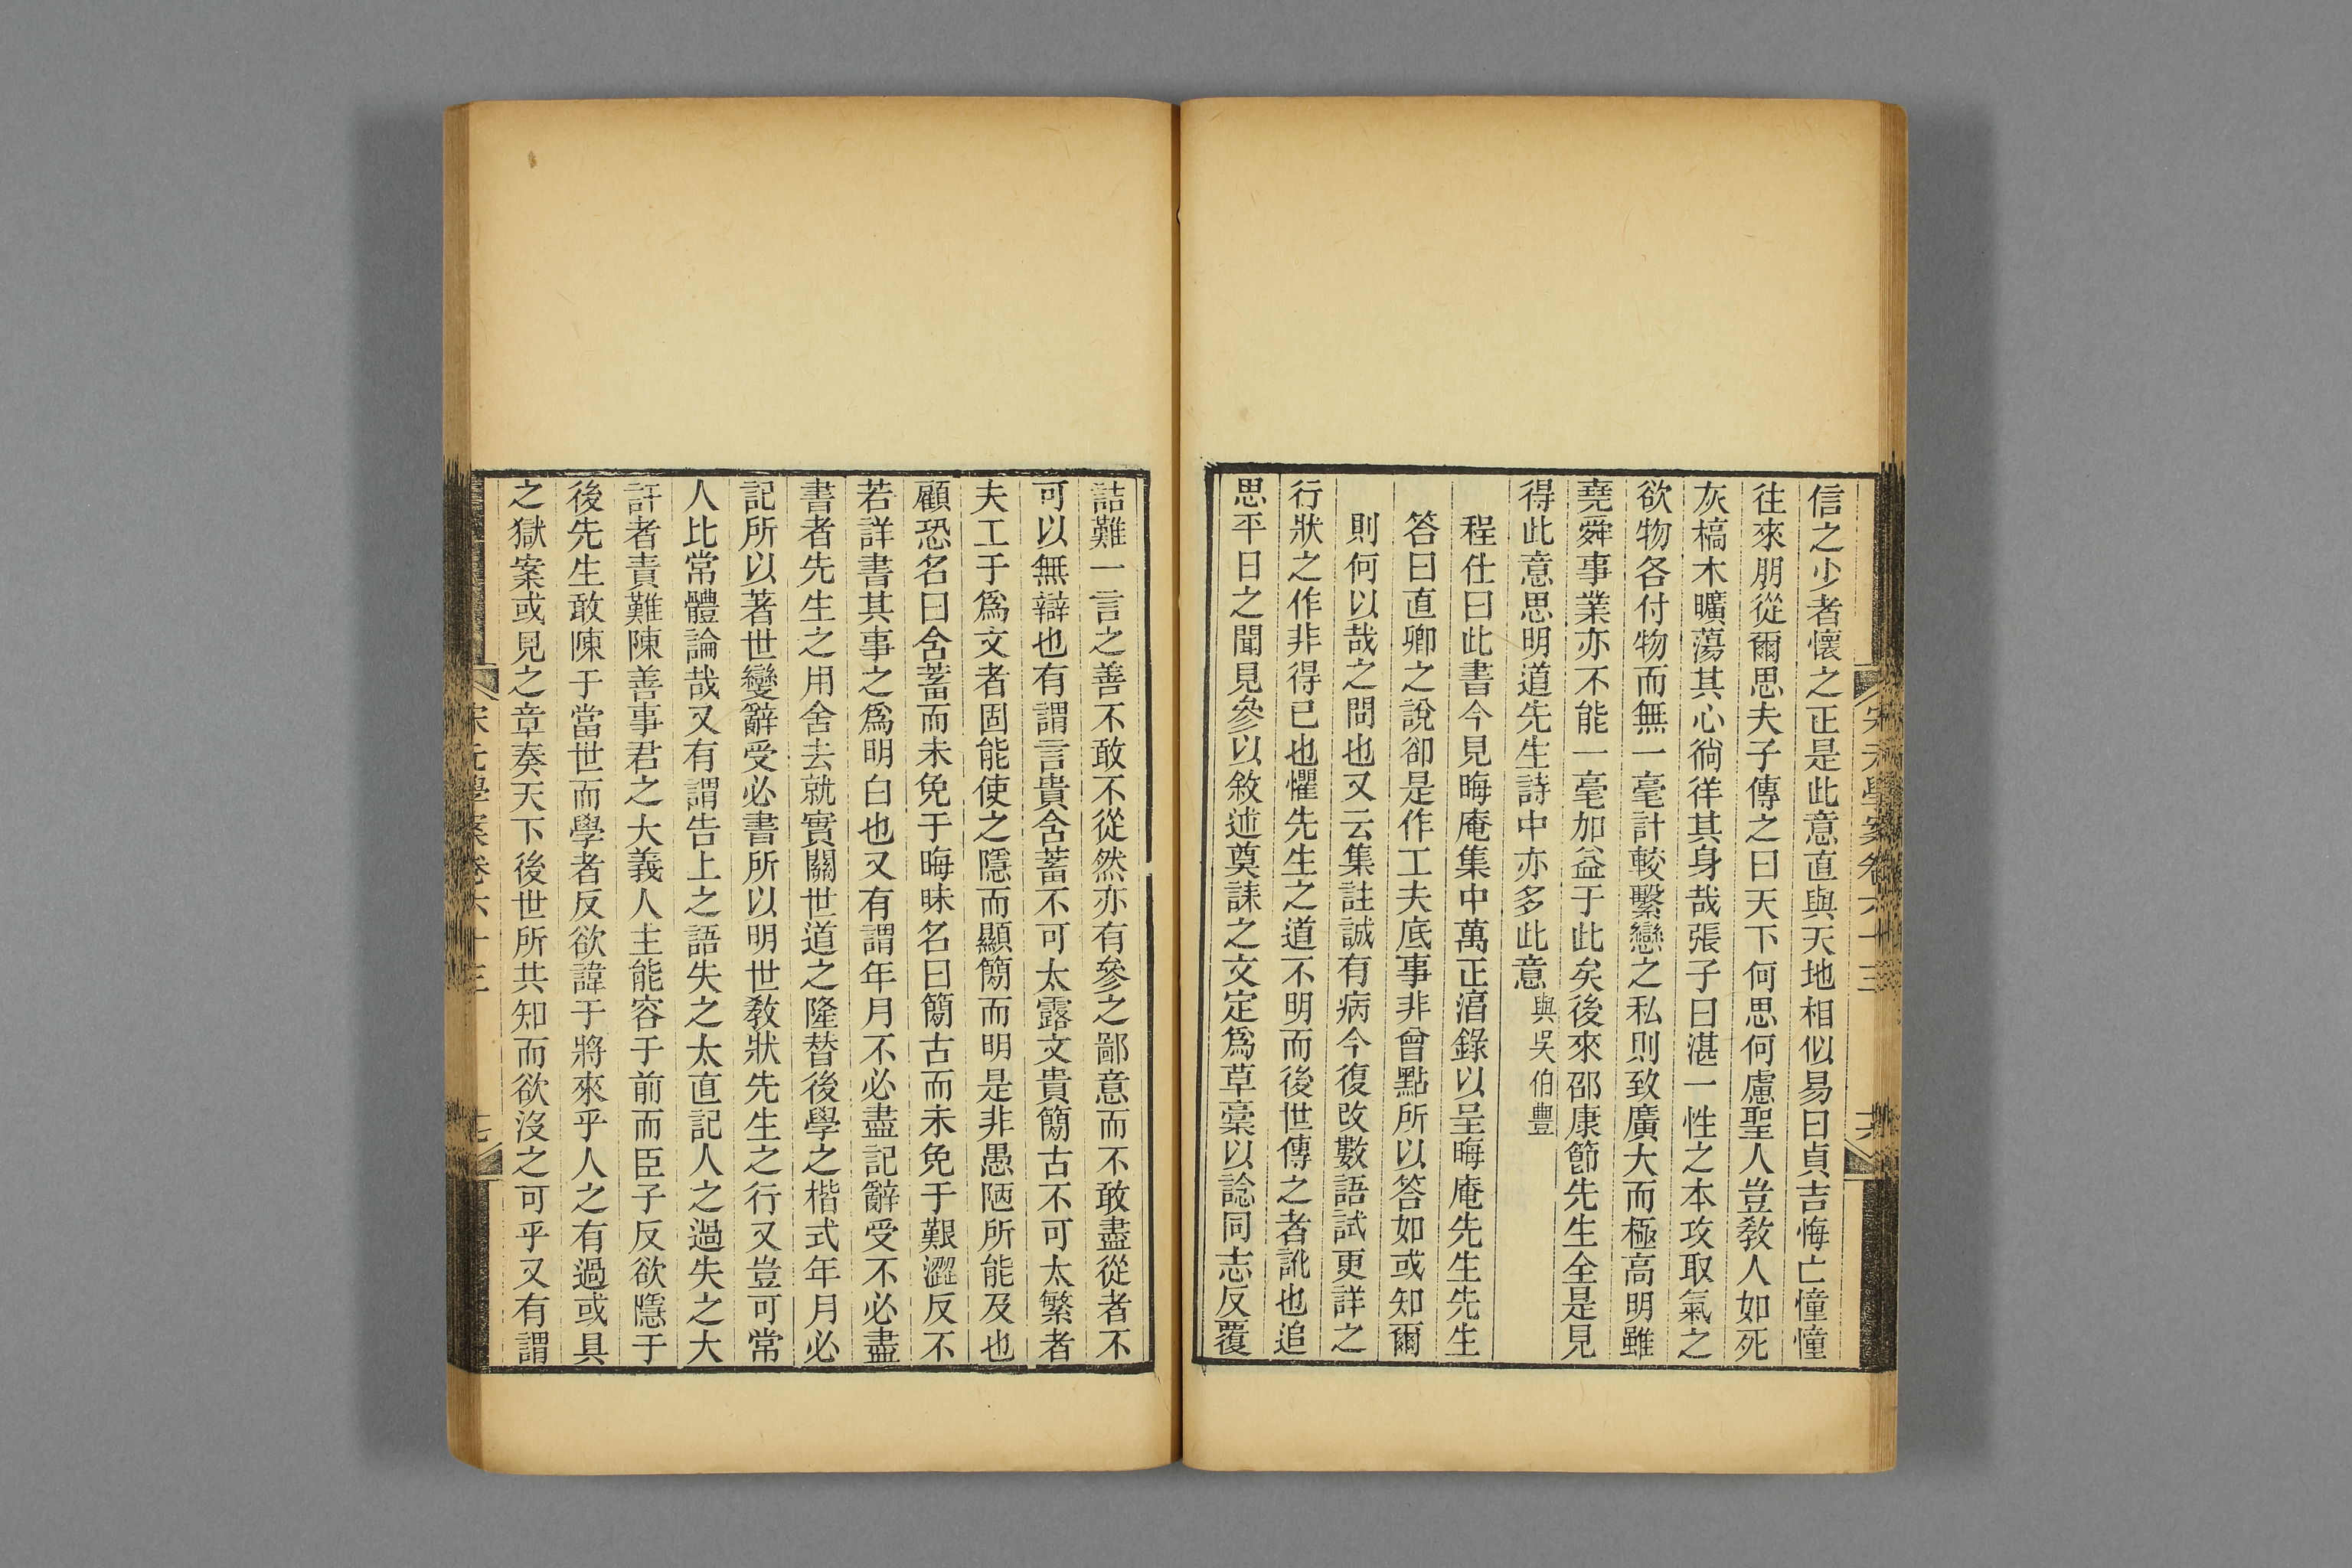 信之少者懷之正是此意直與天地相似易曰貞吉悔亡憧憧
往來朋從爾思夫子傳之曰天下何思何慮聖人豈敎人如死
灰槁木曠蕩其心徜徉其身哉張子曰湛一性之本攻取氣之
欲物各付物而無一毫計較繫戀之私則致廣大而極高明雖
堯舜事業亦不能一毫加益于此矣後來邵康節先生全是見
得此意思明道先生詩中亦多此意與吳伯豐
程仕曰此書今見晦庵集中萬正淳錄以呈晦庵先生先生
答曰直卿之說卻是作工夫底事非曾點所以答如或知爾
則何以哉之問也又云集註誠有病今復改數語試更詳之
行狀之作非得已也懼先生之道不明而後世傳之者訛也追
思平日之聞見參以敘述奠誄之文定爲草槀以諗同志反覆
詰難一言之善不敢不從然亦有參之鄙意而不敢盡從者不
可以無辯也有謂言貴含蓄不可太露文貴簡古不可太繁者
夫工于爲文者固能使之隱而顯簡而明是非愚陋所能及也
顧恐名曰含蓄而未免于晦昧名曰簡古而未免于艱澀反不
若詳書其事之爲明白也又有謂年月不必盡記辭受不必盡
書者先生之用舍去就實關世道之隆替後學之楷式年月必
記所以著世變辭受必書所以明世敎狀先生之行又豈可常
人比常體論哉又有謂告上之語失之太直記人之過失之大
訐者責難陳善事君之大義人主能容于前而臣子反欲隱于
後先生敢陳于當世而學者反欲諱于將來乎人之有過或具
之獄案或見之章奏天下後世所共知而欲沒之可乎又有謂
宋元學案卷六十三